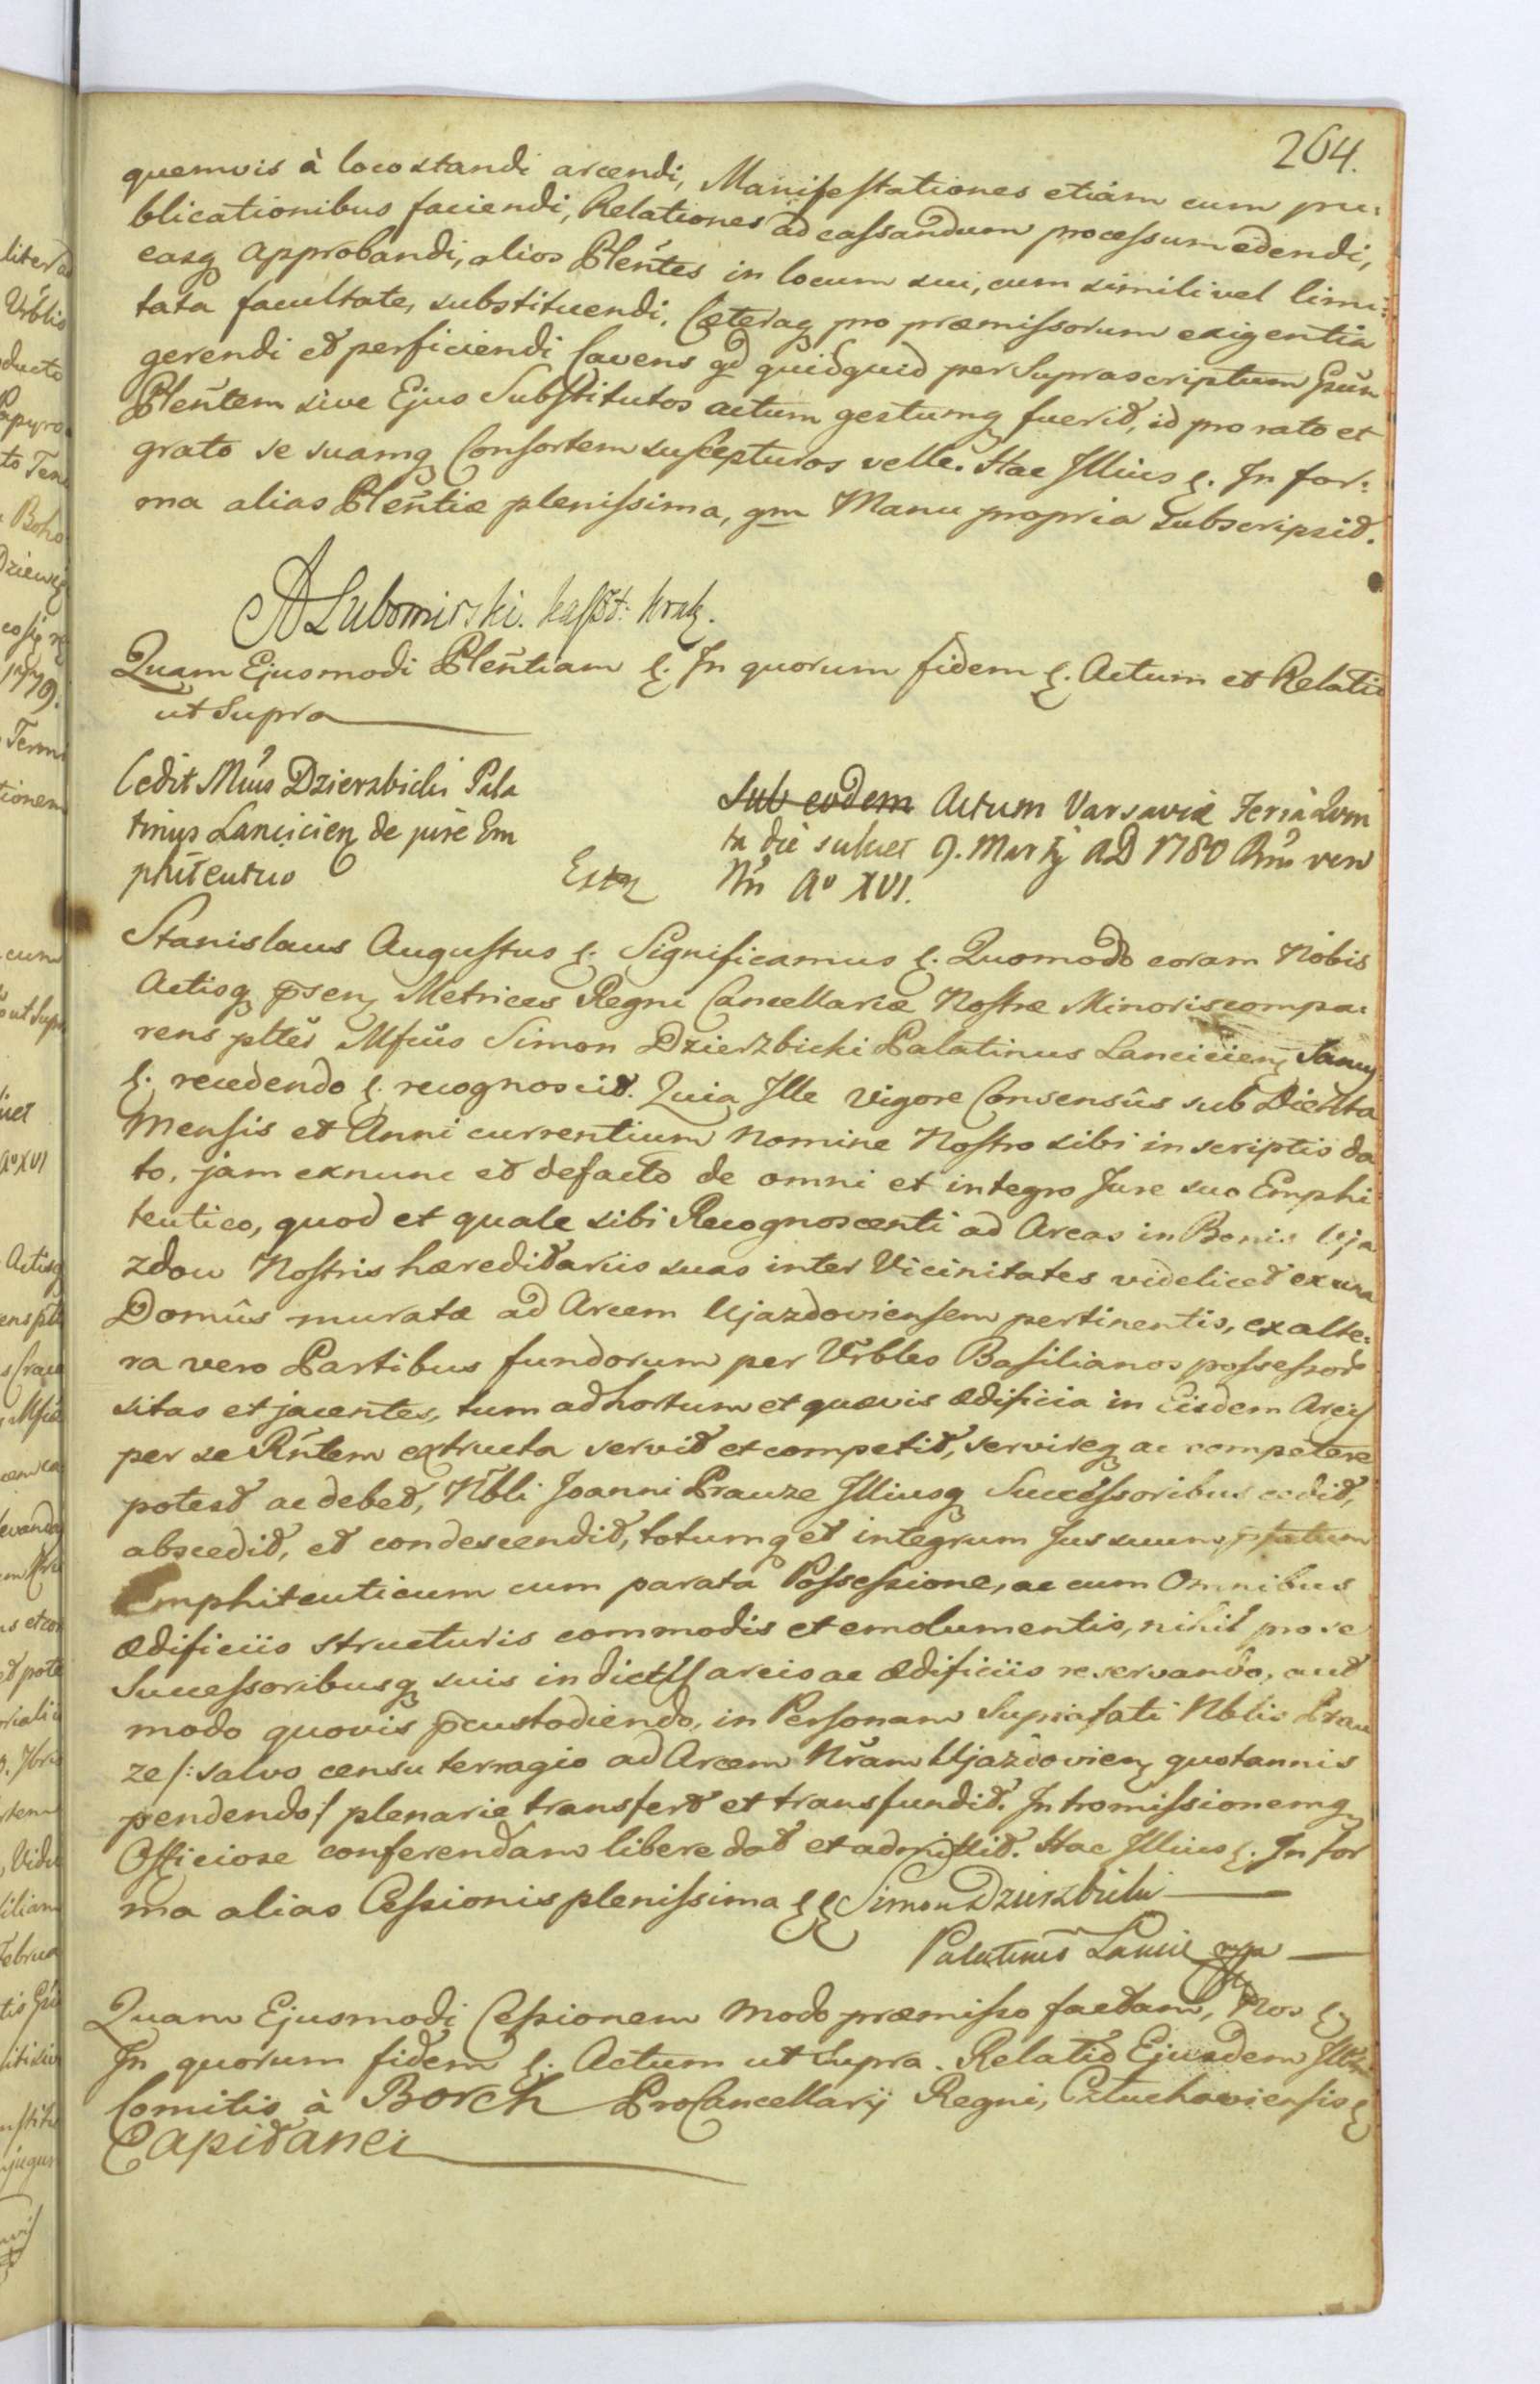 264.
quemvis à loco standi arcendi, Manifestationes etiàm cum pu:
blicationibus faciendi, Relationes ad cassandum processum edendi,
easq approbandi, alios Plentes in locum sui, cum simili vel limi:
tata facultate, substituendi, Cæteraq pro præmissorum exigentia
gerendi et perficiendi Cavens qd quidquid per Suprascriptum
Plentem sive Ejus Substitutos actum gestumq fuerit, id pro rato et
grato se suamq Consortem suscepturos velle. Hac Illius &. In for:
ma alias Plentiæ plenissima, qm Manu propria Subscripsit.
A Lubomirski. kaszt: krak.
Quam Ejusmodi Plentiam &. In quorum fidem &. Actum et Relatio
ut Supra
Cedit Mcus Dzierzbicki Pala
tinus Lancicien de jure Em
phiteutico
Extr
Sub eodem Actum Varsaviæ Feria Quin
ta die scilicet 9. Martij AD 1780 Rni vero
Nri Aº XVI.
Stanislaus Augustus &. Significamus &. Quomodo coram Nobis
Actisq psen Metrices Regni Cancellariæ Nostræ Minoris compa:
rens plter Mfcus Simon Dzierzbicki Palatinus Lancicien Sanus
&. recedendo &. recognoscit. Quia Ille vigore Consensûs sub Die 7ta
Mensis et Anni currentium Nomine Nostro sibi in scriptis da
to, jam exnunc et defacto de omni et integro Jure suo Emphi
teutico, quod et quale sibi Recognoscenti ad Areas in Bonis Uja
zdow Nostris hæreditariis suas inter Vicinitates videlicet ex una
Domûs muratæ ad Arcem Ujazdoviensem pertinentis, ex alte:
ra vero Partibus fundorum per Vrbles Basilianos possessor
sitas et jacentes, tum ad hortum et quævis ædificia in Eisdem Areis
per se Rntem extructa servit et competit, servireq ac competere
potest ac debet, Nbli Joanni Prauze Illiusq Successoribus cedit,
abscedit, et condescendit, totumq et integrum Jus suum pfatum
Emphiteuticum cum parata Possessione, ac cum Omnibus
ædificiis structuris commodis et emolumentis, nihil pro se
Successoribusq suis in dictis areis ac Ædificiis reservando, aut
modo quovis pcustodiendo, in Personam Suprafati Nblis Prau
ze /: salvo censu terragio ad Arcem Nram Ujazdovien quotannis
pendendo :/ plenarie transfert et transfundit. Intromissionemq
Officiose conferendam libere dat et admittit. Hac Illius &. In for
ma alias Cessionis plenissima && Simon Dzierzbicki
Palatinus Lancic mp
Quam Ejusmodi Cessionem modo præmisso factam, Nos &
In quorum fidem &. Actum ut Supra. Relatio Ejusdem
Comitis à Borch ProCancellarij Regni, Człuchoviensis &
Capitanei